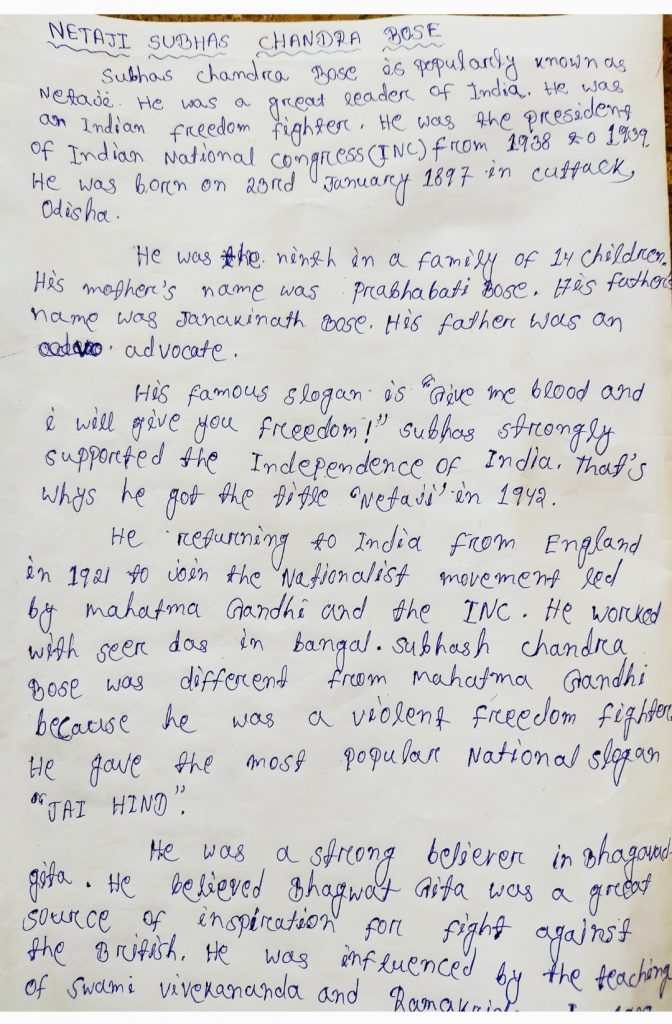 NETAJI SUBHAS CHANDRA BOSE
Subhas Chandra Bose is popularly known as
Netaji. He was a great leader of India. He was
an Indian freedom fighter. He was the president
of Indian National Congress (INC) from 1938 to 1939.
He was born on 23rd January 1897 in cuttack,
Odisha.
He was the ninth in a family of 14 children.
His mother's name was Prabhabati Bose. His father's
name was Janakinath Bose. His father was an
advocate.
His famous slogan is "Give me blood and
i will give you freedom!" subhas strongly
supported the Independence of India. That's
whys he got the title "Netaji" in 1942.
He returning to India from England
in 1921 to join the Nationalist movement led
by Mahatma Gandhi and the INC. He worked
with seer das in bangal. Subhash chandra
Bose was different from Mahatma Gandhi
because he was a violent freedom fighter
He gave the most popular National slogan
"JAI HIND".
He was a strong believer in Bhagavad
gita. He believed Bhagwat Gita was a great
source of inspiration for fight against
the British. He was influenced by the teaching
of swami vivekananda and